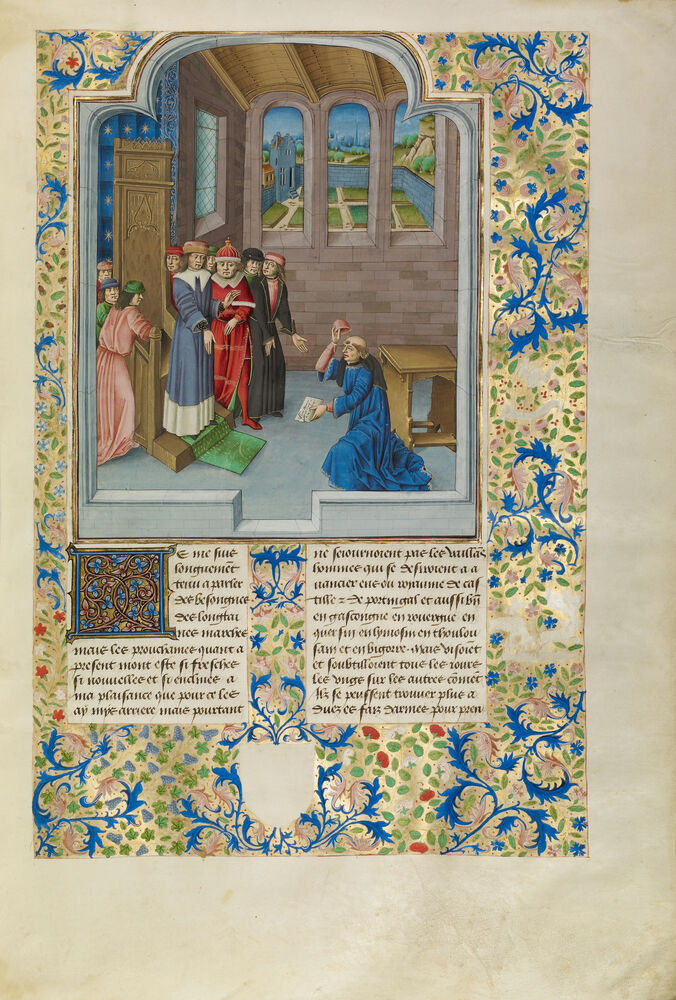 E me suis
longuement
tenu a parler
des besongnes
des longtai
nes marches
mais les prouchaines quant a
present mont este si fresches
si nouuelles et si enclines a
ma plaisance que pour ce les
ay mys arriere mais pourtant
ne seiournoient pas les vaillās
hommes qui se desiroient a a
uancier eue ou royaume de cas
tille z de portingal et aussi bn̄
en gascongne en rouergue en
quersin en lymosin en thoulou
sain et en bigorre. Mais visoiēt
et soubtilloient tous les iours
les vngs sur les autres cōmēt
ilz se peussent trouuer plus a
duez es faiz darmes pour pren